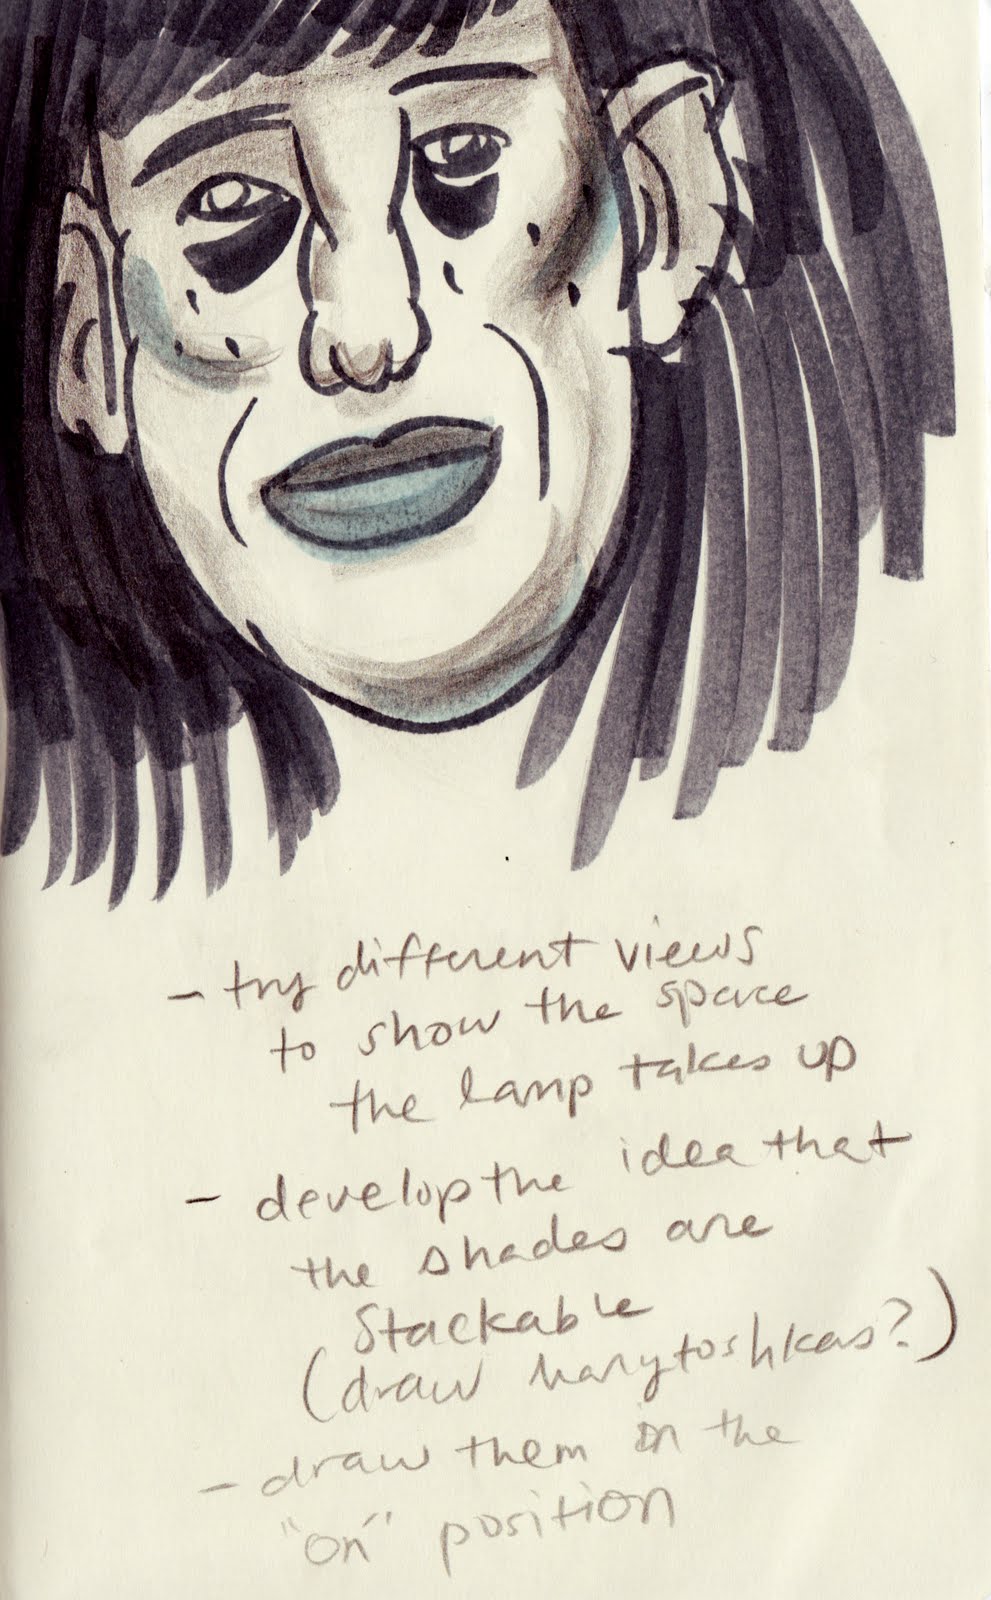 - try different views
to show the space
the lamp takes up
- develop the idea that
the shades are
stackable
(draw marytoshkas?)
- draw them in the
"on" position